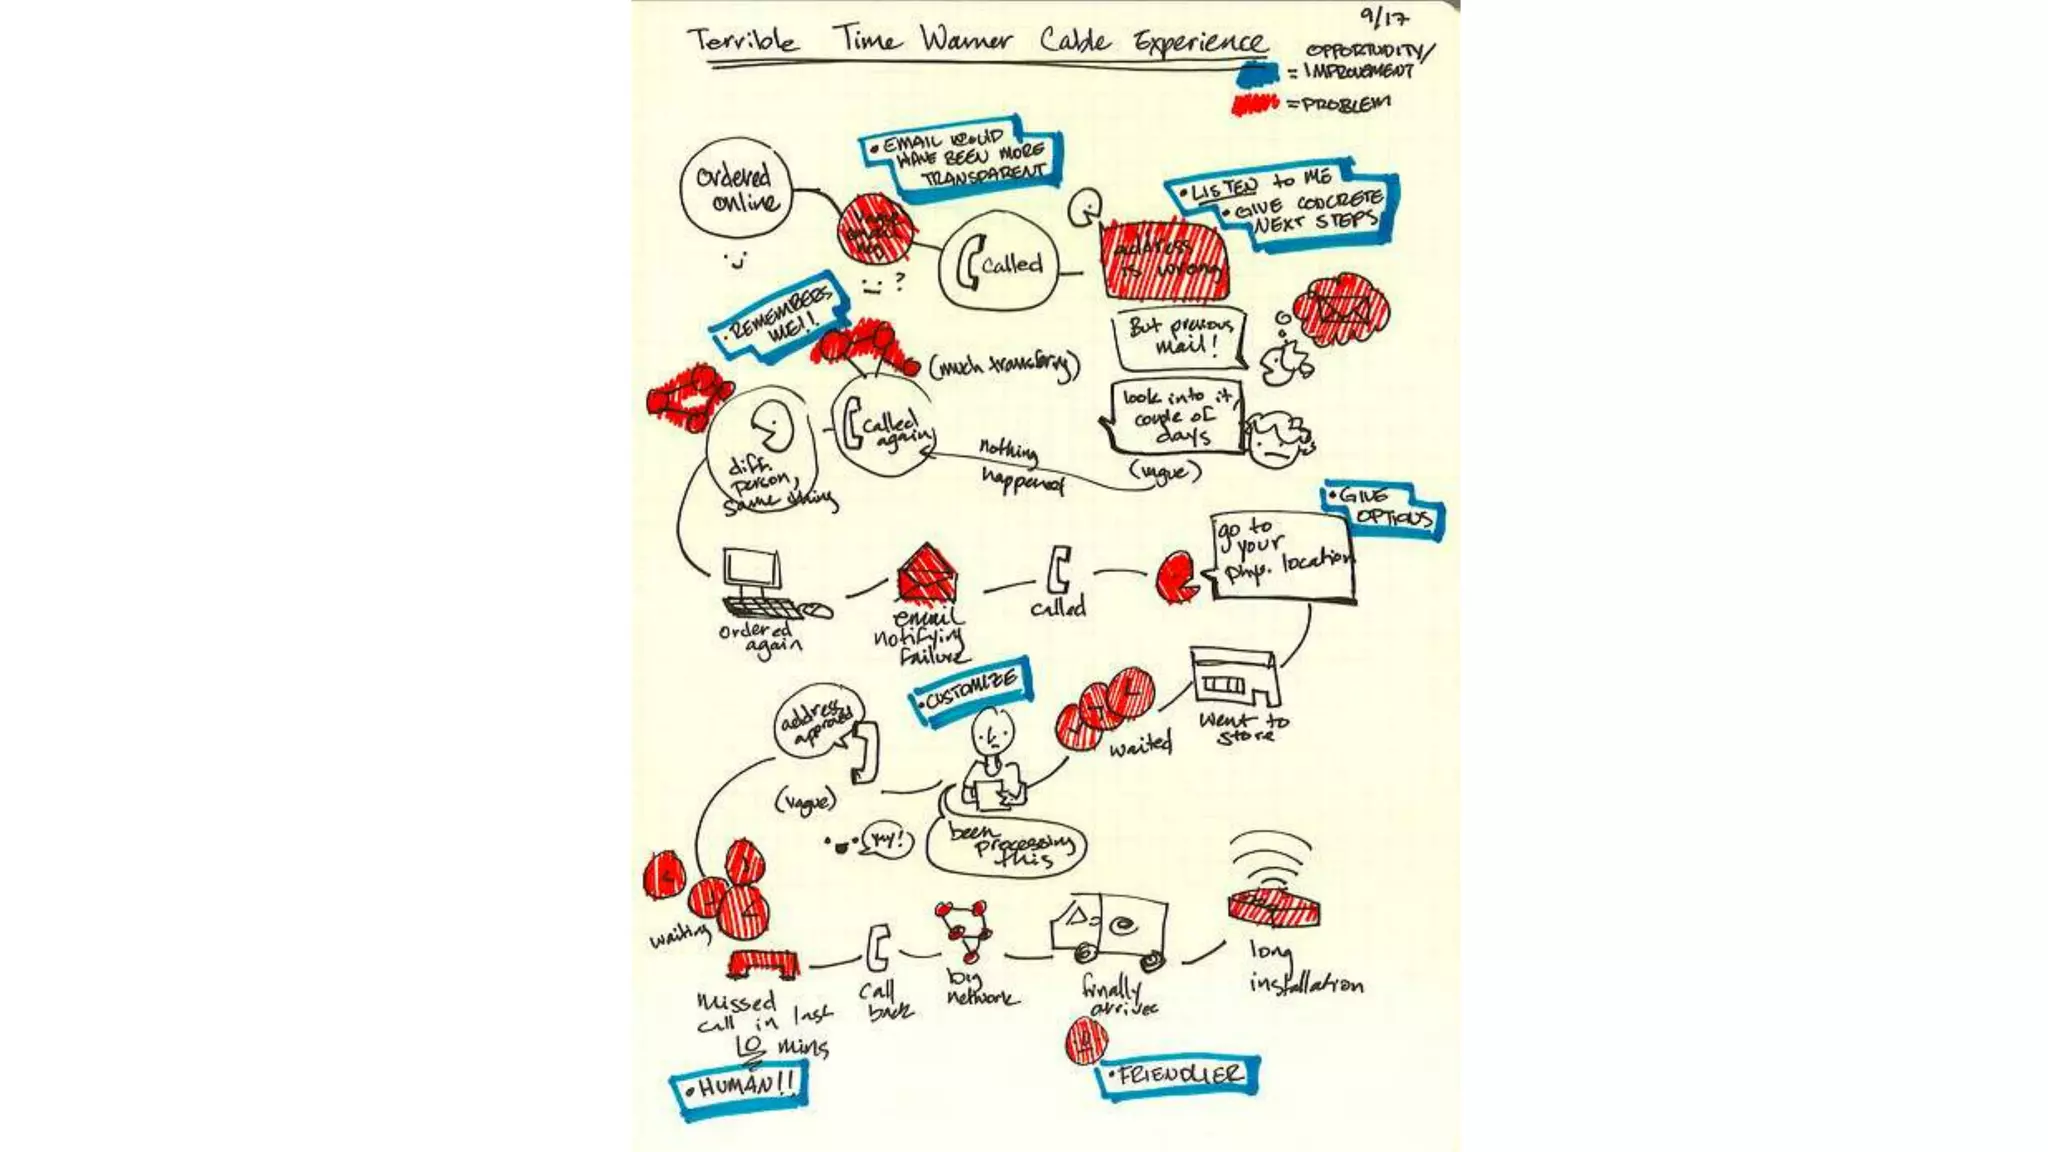 9/17
Terrible Time Warner Cable Experience
OPPORTUNITY/
= IMPROVEMENT
= PROBLEM
• EMAIL WOULD
HAVE BEEN MORE
TRANSPARENT
ordered
online
vague
email
• LISTEN to ME
• GIVE CONCRETE
NEXT STEPS
?
called
address
is wrong
• REMEMBERS
ME!!
But previous
mail!
(much transfering)
look into it,
couple of
days
(vague)
called
again
nothing
happened
diff.
person,
same thing
• GIVE
OPTIONS
go to
your
phys. location
ordered
again
email
notifying
failure
called
went to
store
waited
• CUSTOMIZE
address
approved
(vague)
yay!
been
processing
this
waiting
missed
call in last
10 mins
call
back
big
network
finally
arrives
long
installation
• HUMAN!!
• FRIENDLIER